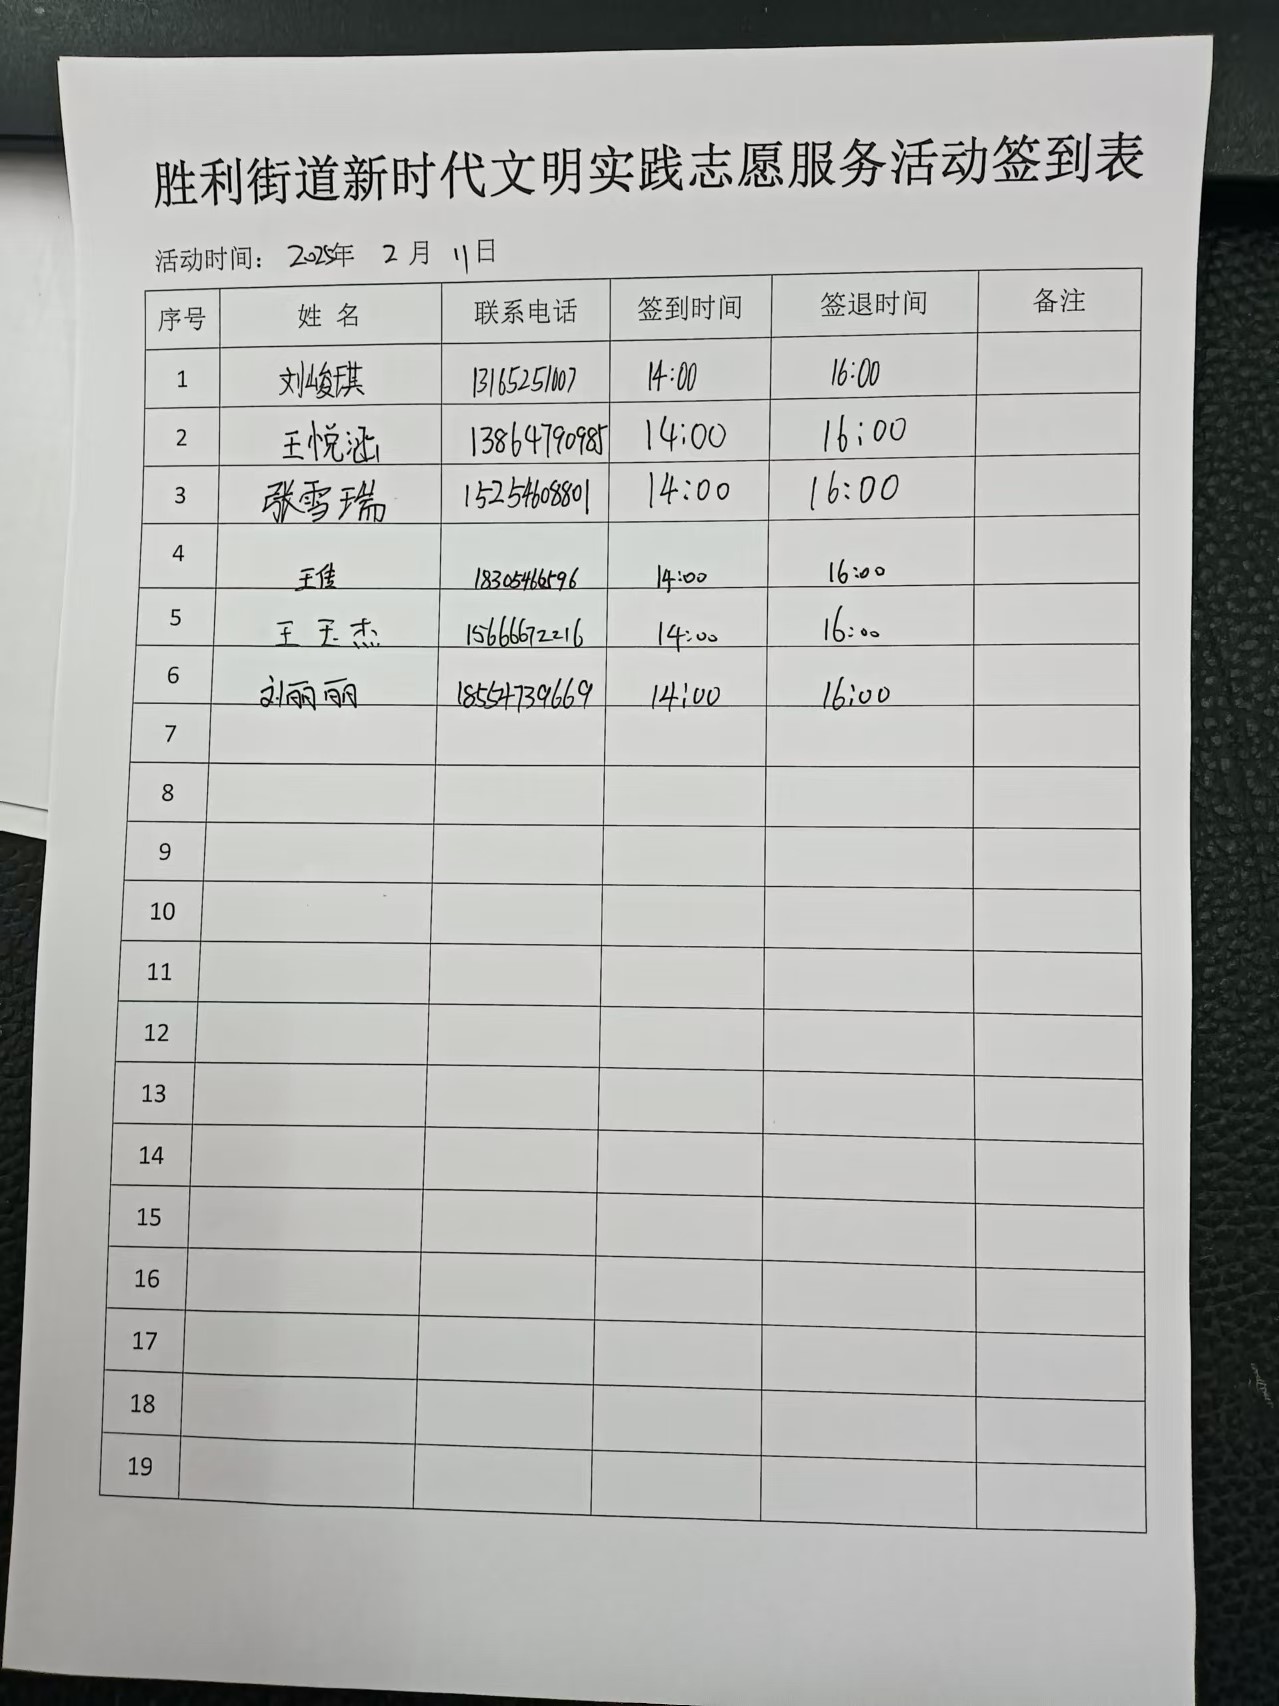 胜利街道新时代文明实践志愿服务活动签到表
活动时间： 2025年 2 月 11日
序号 姓 名 联系电话 签到时间 签退时间 备注
1 刘峻琪 13165251007 14:00 16:00
2 王悦涵 13864790985 14:00 16:00
3 张雪瑞 15254608801 14:00 16:00
4 王佳 18305466596 14:00 16:00
5 王玉杰 15666672216 14:00 16:00
6 刘丽丽 18554739669 14:00 16:00
7
8
9
10
11
12
13
14
15
16
17
18
19